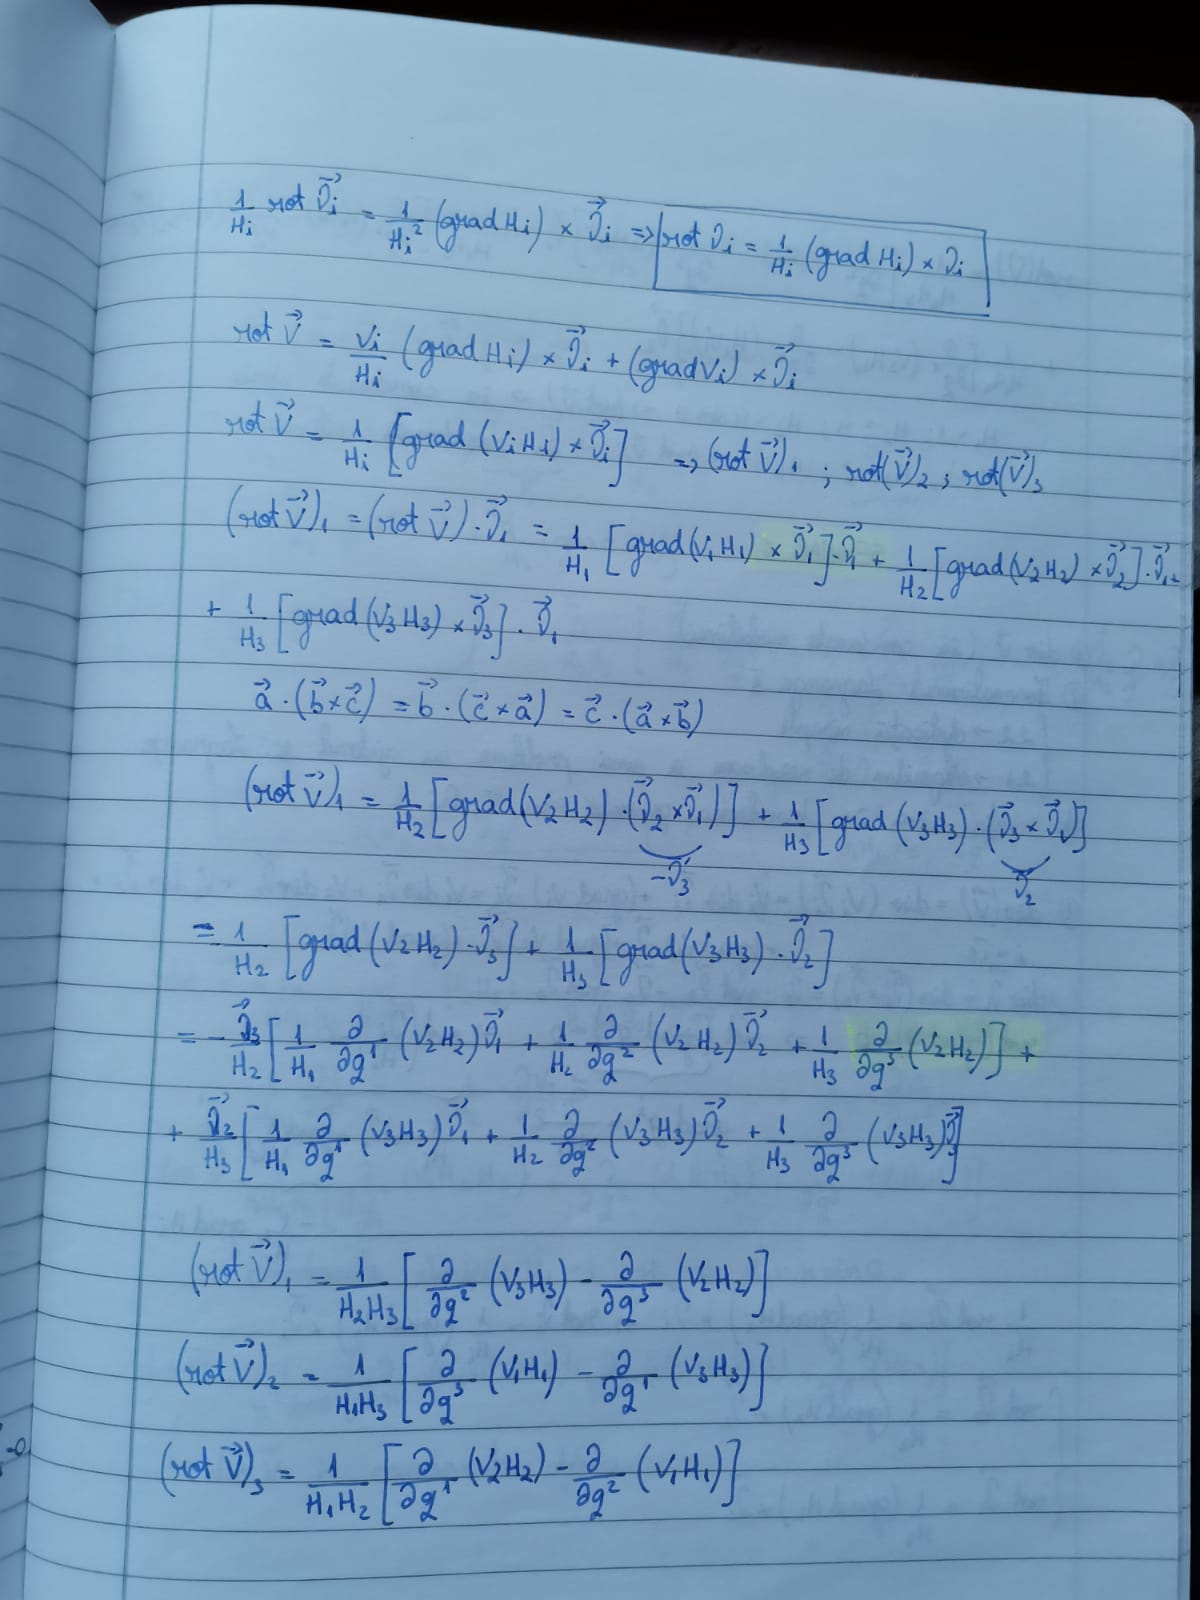 1/Hi rot ℐ⃗i = 1/Hi² (grad Hi) × ℐ⃗i => rot ℐi = 1/Hi (grad Hi) × ℐi
rot V⃗ = Vi/Hi (grad Hi) × ℐ⃗i + (grad Vi) × ℐ⃗i
rot V⃗ = 1/Hi [grad (Vi Hi) × ℐ⃗i] => (rot V⃗)1 ; rot(V⃗)2 ; rot(V⃗)3
(rot V⃗)1 = (rot V⃗) · ℐ⃗1 = 1/H1 [grad(V1H1) × ℐ⃗1] · ℐ⃗1 + 1/H2 [grad(V2H2) × ℐ⃗2] · ℐ⃗1 +
+ 1/H3 [grad(V3H3) × ℐ⃗3] · ℐ⃗1
a⃗ · (b⃗ × c⃗) = b⃗ · (c⃗ × a⃗) = c⃗ · (a⃗ × b⃗)
(rot V⃗)1 = 1/H2 [grad(V2H2) · (ℐ⃗2 × ℐ⃗1)] + 1/H3 [grad(V3H3) · (ℐ⃗3 × ℐ⃗1)]
-ℐ⃗3 ℐ⃗2
= 1/H2 [grad(V2H2) · ℐ⃗3] + 1/H3 [grad(V3H3) · ℐ⃗2]
= - ℐ⃗3/H2 [1/H1 ∂/∂q¹ (V2H2) ℐ⃗1 + 1/H2 ∂/∂q² (V2H2) ℐ⃗2 + 1/H3 ∂/∂q³ (V2H2)] +
+ ℐ⃗2/H3 [1/H1 ∂/∂q¹ (V3H3) ℐ⃗1 + 1/H2 ∂/∂q² (V3H3) ℐ⃗2 + 1/H3 ∂/∂q³ (V3H3) ℐ⃗3]
(rot V⃗)1 = 1/H2H3 [∂/∂q² (V3H3) - ∂/∂q³ (V2H2)]
(rot V⃗)2 = 1/H1H3 [∂/∂q³ (V1H1) - ∂/∂q¹ (V3H3)]
(rot V⃗)3 = 1/H1H2 [∂/∂q¹ (V2H2) - ∂/∂q² (V1H1)]